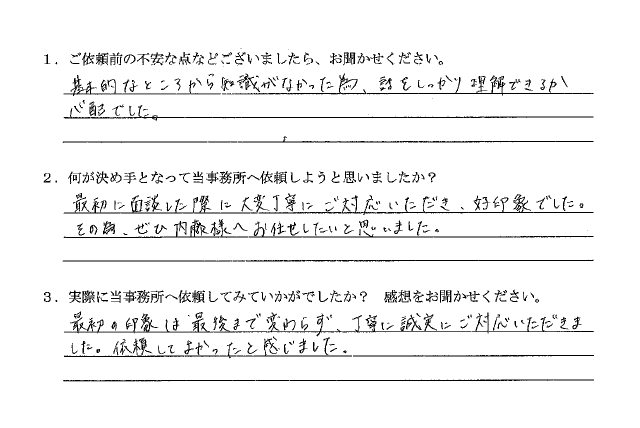 1．ご依頼前の不安な点などございましたら、お聞かせください。
基本的なところから知識がなかった為、話をしっかり理解できるか
心配でした。
2．何が決め手となって当事務所へ依頼しようと思いましたか？
最初に面談した際に大変丁寧にご対応いただき、好印象でした。
その為、ぜひ内藤様へお任せしたいと思いました。
3．実際に当事務所へ依頼してみていかがでしたか？　感想をお聞かせください。
最初の印象は最後まで変わらず、丁寧に誠実にご対応いただきま
した。依頼してよかったと感じました。